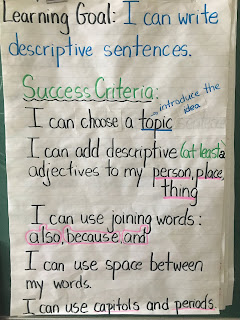 Learning Goal: I can write
descriptive sentences.
Success Criteria:
introduce the
idea
I can choose a topic
I can add descriptive (at least 2)
adjectives to my person, place,
thing
I can use joining words:
also, because, and
I can use space between
my words.
I can use capitols and periods.